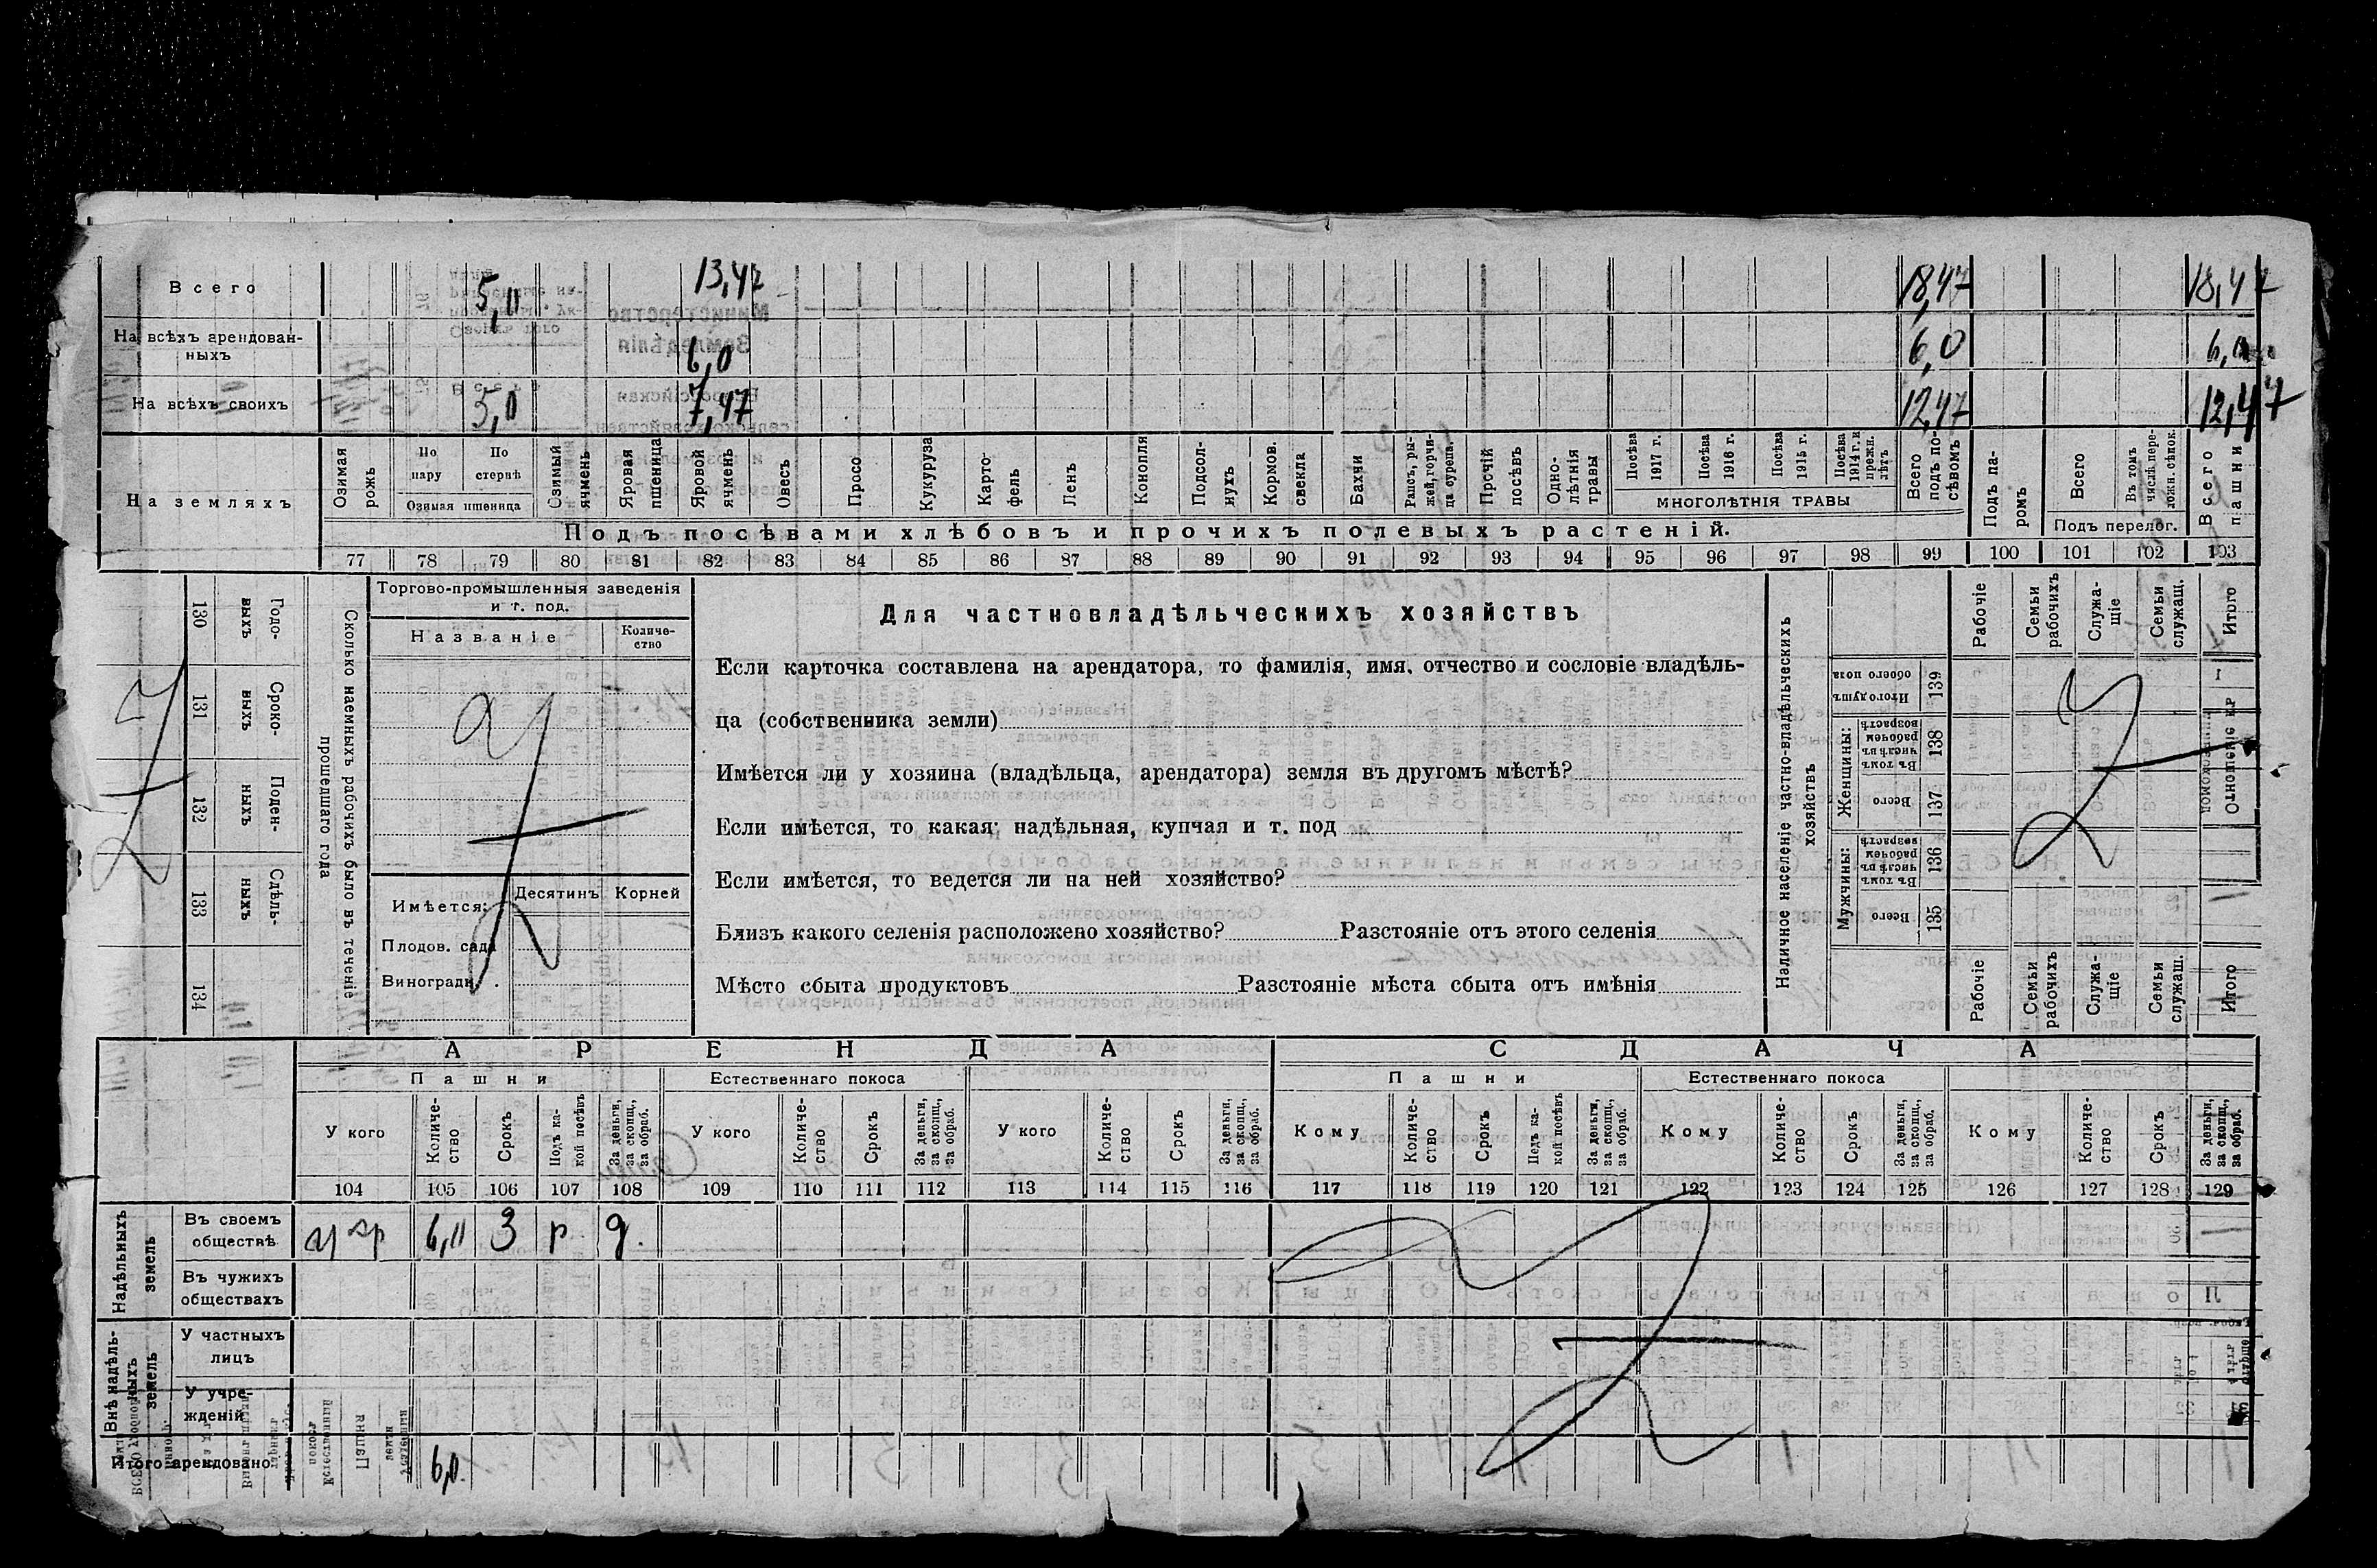 Всего 5,0 13,47 18,47 18,47
На всѣхъ арендован-
ныхъ 6,0 6,0 6,0
На всѣхъ своихъ 5,0 7,47 12,47 12,47
На земляхъ
Озимая рожь
По пару
По стернѣ
Озимая пшеница
Озимый ячмень
Яровая пшеница
Яровой ячмень
Овесъ
Просо
Кукуруза
Карто-
фель
Ленъ
Конопля
Подсол-
нухъ
Кормов. свекла
Бахчи
Рапсъ, ры-
жей, горчи-
ца сурепа.
Прочій посѣвъ
Одно-
лѣтнія травы
Посѣва 1917 г.
Посѣва 1916 г.
Посѣва 1915 г.
Посѣва 1914 г. и прежн. лѣтъ
МНОГОЛѢТНІЯ ТРАВЫ
Всего подъ по-
сѣвомъ
Подъ па-
ромъ
Всего
Въ томъ числѣ пере-
ложн. сѣнок.
Подъ перелог.
Всего пашни
Подъ посѣвами хлѣбовъ и прочихъ полевыхъ растеній.
77 78 79 80 81 82 83 84 85 86 87 88 89 90 91 92 93 94 95 96 97 98 99 100 101 102 103
130 Годо-
выхъ
131 Сроко-
выхъ
132 Поден-
ныхъ
133 Сдѣль-
ныхъ
134
Сколько наемныхъ рабочихъ было въ теченіе
прошедшаго года
Торгово-промышленныя заведенія
и т. под.
Названіе
Количе-
ство
Имѣется:
Десятинъ Корней
Плодов. сада
Виноградн.
Для частновладѣльческихъ хозяйствъ
Если карточка составлена на арендатора, то фамилія, имя, отчество и сословіе владѣль-
ца (собственника земли)
Имѣется ли у хозяина (владѣльца, арендатора) земля въ другомъ мѣстѣ?
Если имѣется, то какая: надѣльная, купчая и т. под
Если имѣется, то ведется ли на ней хозяйство?
Близъ какого селенія расположено хозяйство? Разстояніе отъ этого селенія
Мѣсто сбыта продуктовъ Разстояніе мѣста сбыта отъ имѣнія
Наличное населеніе частно-владѣльческихъ
хозяйствъ
Итого душъ обоего пола 139
Женщины:
Въ томъ числѣ въ рабочемъ возрастѣ 138
Всего 137
Мужчины:
Въ томъ числѣ въ рабочем возрастѣ 136
Всего 135
Рабочіе
Семьи рабочихъ
Служа-
щіе
Семьи служащ.
Итого
Рабочіе
Семьи рабочихъ
Служа-
щіе
Семьи служащ.
Итого
АРЕНДА СДАЧА
Пашни Естественнаго покоса Пашни Естественнаго покоса
У кого
Количе-
ство
Срокъ
Подъ ка-
кой посѣвъ
За деньги, за скопщ., за обраб.
У кого
Количе-
ство
Срокъ
За деньги, за скопщ., за обраб.
У кого
Количе-
ство
Срокъ
За деньги, за скопщ., за обраб.
Кому
Количе-
ство
Срокъ
Подъ ка-
кой посѣвъ
За деньги, за скопщ., за обраб.
Кому
Количе-
ство
Срокъ
За деньги, за скопщ., за обраб.
Кому
Количе-
ство
Срокъ
За деньги, за скопщ., за обраб.
104 105 106 107 108 109 110 111 112 113 114 115 116 117 118 119 120 121 122 123 124 125 126 127 128 129
Надѣльныхъ
земель
Въ своемъ
обществѣ 6,0 3 р д.
Въ чужихъ
обществахъ
Внѣ надѣль-
ныхъ
земель
У частныхъ
лицъ
У учре-
жденій
Итого арендовано 6,0